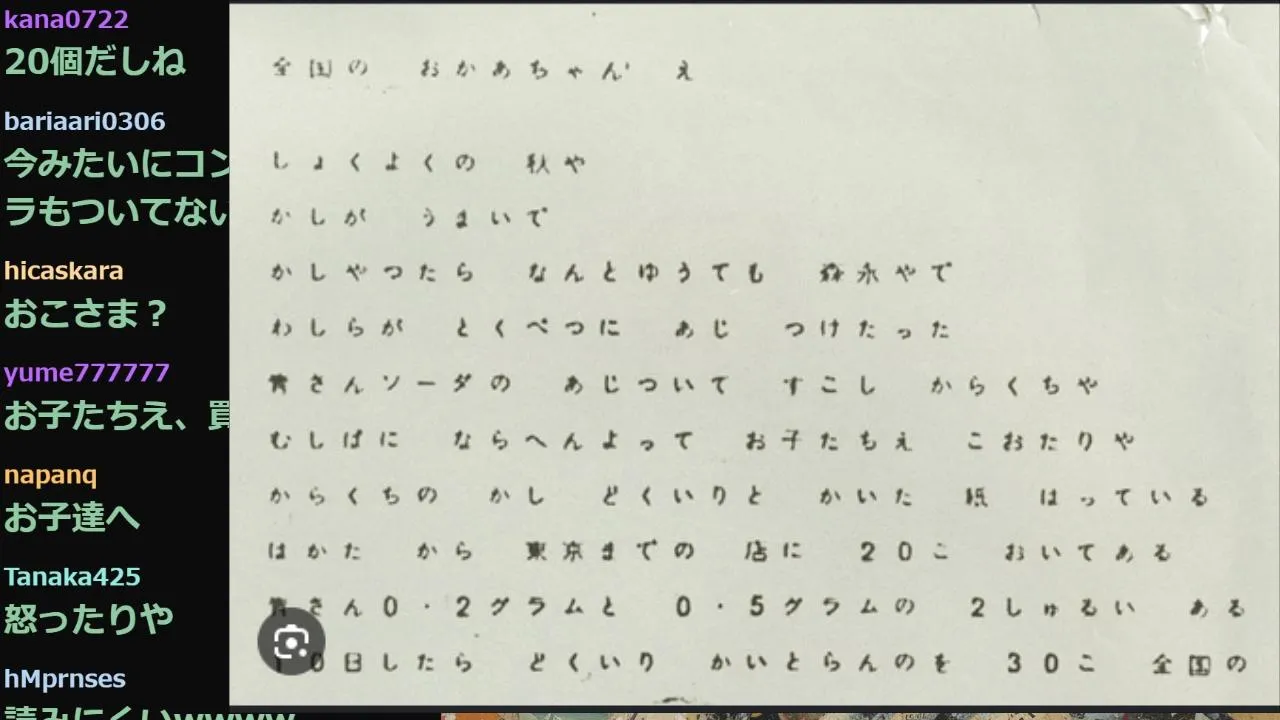 kana0722
20個だしね
bariaari0306
今みたいにコン
ラもついてない
hicaskara
おこさま？
yume777777
お子たちえ、買
napanq
お子達へ
Tanaka425
怒ったりや
hMprnses
読みにくいwwww
全国の おかあちゃん え
しょくよくの 秋や
かしが うまいで
かしやつたら なんとゆうても 森永やで
わしらが とくべつに あじ つけたった
青さんソーダの あじついて すこし からくちや
むしばに ならへんよって お子たちえ こおたりや
からくちの かし どくいりと かいた 紙 はっている
はかた から 東京までの 店に 20こ おいてある
青さん0.2グラムと 0.5グラムの 2しゅるい ある
10日したら どくいり かいとらんのを 30こ 全国の